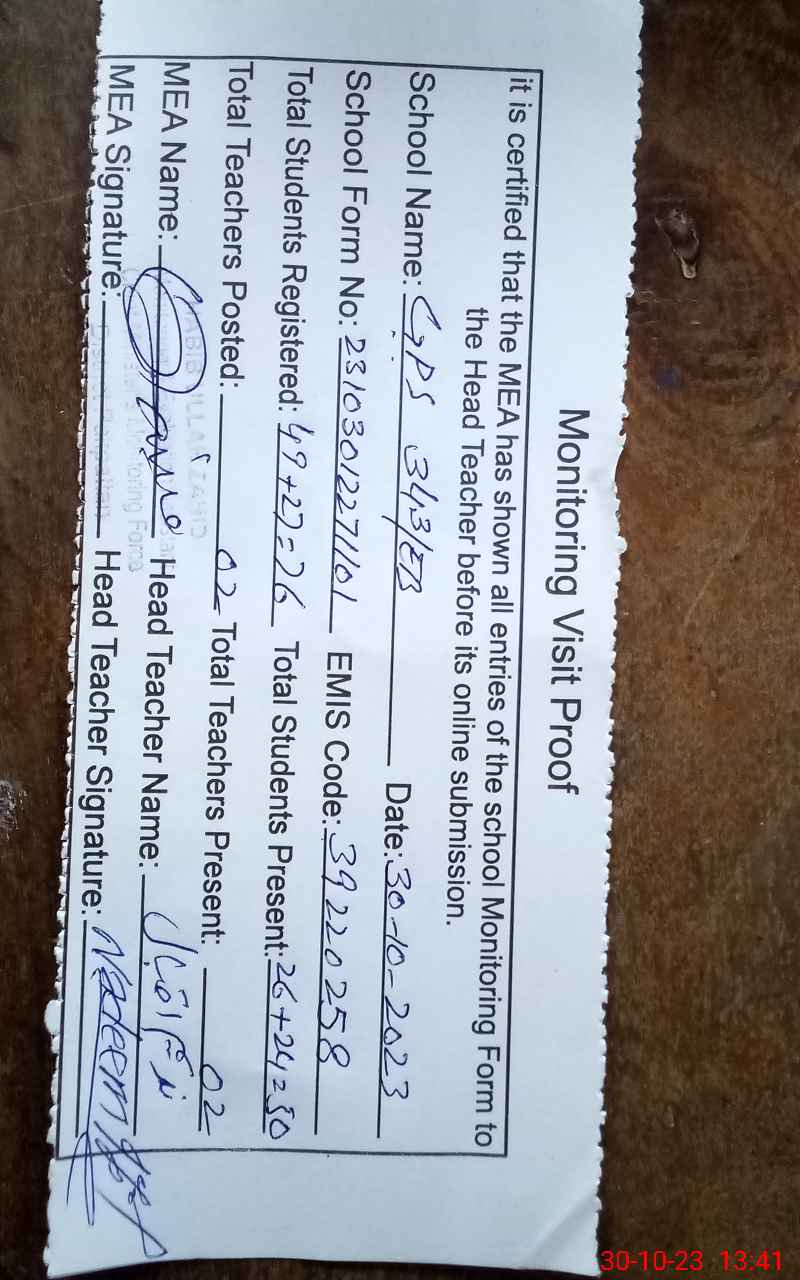 Monitoring Visit Proof
it is certified that the MEA has shown all entries of the school Monitoring Form to
the Head Teacher before its online submission.
School Name: GPS 343/EB Date: 30-10-2023
School Form No: 23103012271101 EMIS Code: 39220258
Total Students Registered: 49+27=76 Total Students Present: 26+24=50
Total Teachers Posted: 02 Total Teachers Present: 02
MEA Name: Head Teacher Name: ندیم اقبال
MEA Signature: Head Teacher Signature: Nadeem
30-10-23 13:41